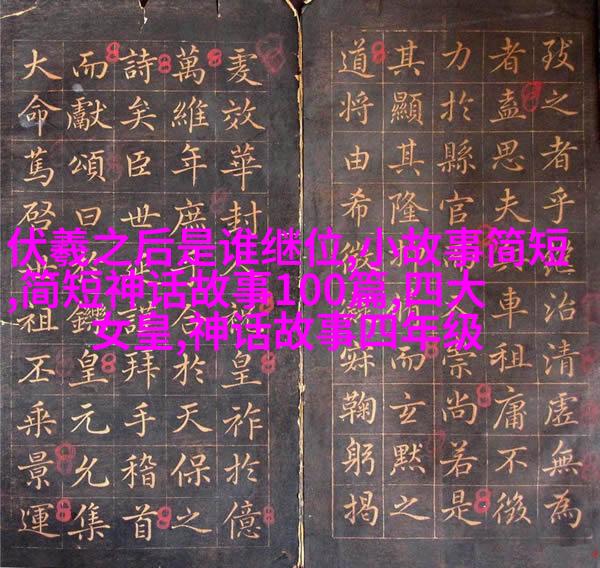 伏羲之后是谁继位,小故事简短
,简短神话故事100篇,四大
女皇,神话故事四年级
之者乎治清虛無為
者盍思夫車租庸不徵
力於縣官崇尚若是
其顯其隆而玄默之
道將由希微鞠躬揭
效華封皇祚於億
萬維年庶合於天保之
詩矣臣世謹拜手稽首
而獻頌曰鑠皇元允集
大命篤啓祖丕乘景運